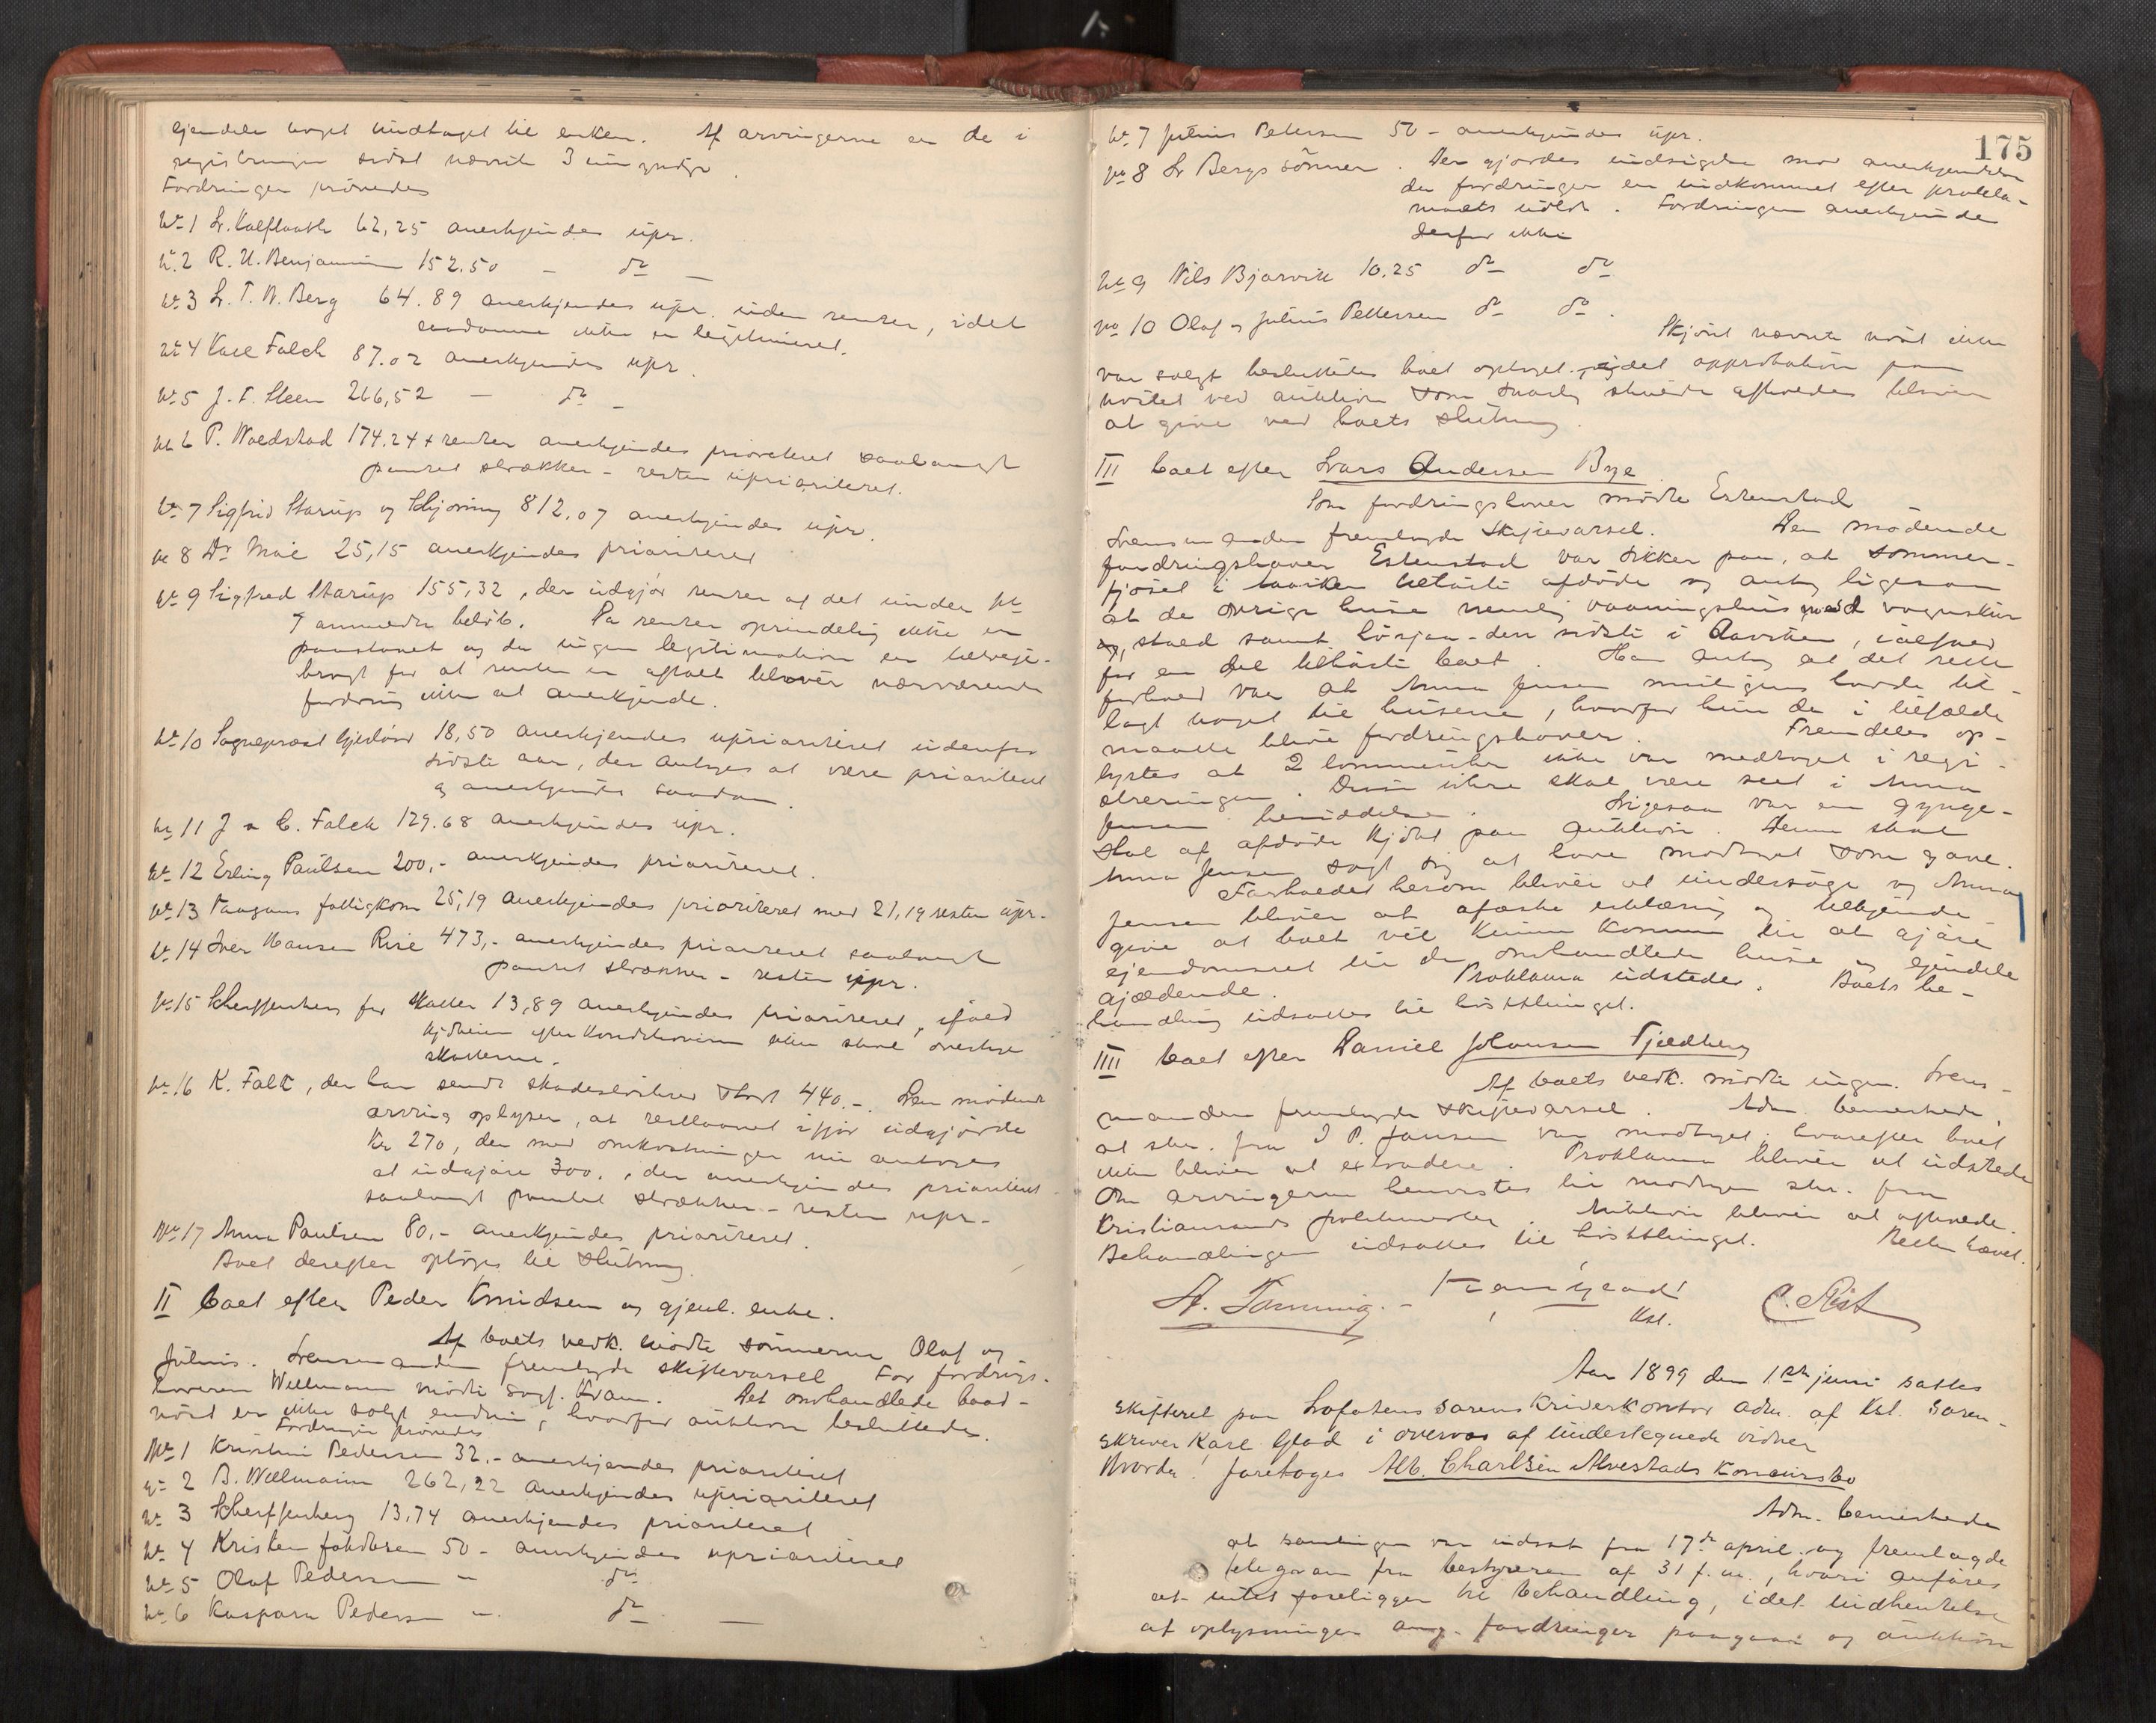 ejendele noget undtaget til enken. Af arvingerne er de i
registreringen sidst nævnte 3 umyndige.
Fordringer prövedes
No 1 L. Kalfloath 62,25 anerkjendes upr.
No 2 R. U. Benjamin 152.50 - do -
No 3 L. T. N. Berg 64.89 anerkjendes upr. uden renter, idet
saadanne ikke er legitimeret.
No 4 Kaee Falch 87.02 anerkjendes upr.
No 5 J. F. Steen 266,52 - do -
No 6 P. Woldstad 174.24 + renter anerkjendes prioriteret saalangt
pantet strækker - resten uprioriteret.
No 7 Sigfrid Starup og Schjörning 812,07 anerkjendes upr.
No 8 Dr Moe 25,15 anerkjendes prioriteret
No 9 Sigfred Starup 155,32, der udgjör renter af det under No
7 anmeldte belöb. Da renter oprindelig ikke er
paastaaet og da ingen legitimation er tilveje-
bragt for at renter er aftalt bliver nærværende
fordring ikke at anerkjende.
No 10 Sogneprest Gjelöw 18,50 anerkjendes uprioriteret udenfor
sidste aar, der antages at være prioriteret
og anerkjendes saadan.
No 11 J & C. Falch 129.68 anerkjendes upr.
No 12 Erling Paulsen 200,- anerkjendes prioriteret.
No 13 Vaagans fattigkom 25,19 anerkjendes prioriteret med 21,19 resten upr.
No 14 Iver Hansen Rise 473,- anerkjendes prioriteret saalangt
pantet strækker - resten upr.
No 15 Scherffenberg for skatter 13,89 anerkjendes prioriteret, ifald
efter skal overtage
skatterne.
No 16 K. Falk, der har sendt skadeslösbrev stort 440.-. Den mödende
arving oplyser, at restlaanet ifjor udgjorde
Kr 270, der med omkostninger nu antages
at udgjöre 300., der anerkjendes prioriteret
saalangt pantet strækker - resten upr.
No 17 Anna Paulsen 80,- anerkjendes prioriteret.
Boet derefter optoges til slutning
II boet efter Peder Knudsen og gjenl. enke.
Af boets vedk. mödte sönnerne Olaf og
Julius. Lensmanden fremlagde skiftevarsel For fordrings-
haveren Wellmann mödte sagf. Kram. Det omhandlede baad-
nöst er ikke solgt endnu, hvorfor auktion besluttedes.
Fordringer prövedes
No 1 Kristine Pedersen 32,- anerkjendes prioriteret
No 2 B. Wellmann 262,22 anerkjendes uprioriteret
No 3 Scherffenberg 13,74 anerkjendes prioriteret
No 4 Kristen Jakobsen 50 - anerkjendes uprioriteret
No 5 Olaf Pedersen - do
No 6 Kaspara Pedersen - do -
175
No 7 Julius Pettersen 50 - anerkjendes upr.
No 8 L Bergs sönner. Der gjordes indsigelse mod anerkjendelsen
da fordringen er indkommet efter prokla-
maets udlöb. Fordringen anerkjendes
derfor ikke
No 9 Nils Bjarvik 10.25 do do
No 10 Olaf og Julius Pettersen do do.
Skjönt nævnte nöst ikke
var solgt besluttedes boet optaget, idet approbation paa
nöstet ved auktion som snarlig skulde afholdes bliver
at give ved boets slutning.
III boet efter Lars Andersen Bye
Som fordringshaver mödte Estenstad
Lensmanden fremlagde skiftevarsel. Den mödende
fordringshaver Estenstad var sikker paa, at sommer-
fjöset i marken tilhörte afdöde og antog ligesom
at de övrige huse nemlig vaaningshus med vognskur
og, stald samt höhjæl - den sidste i Aavika, ialfald
for en del tilhörte boet. Han antog at det rette
forhold var at Anna Jensen muligens havde til-
lagt noget til husene, hvorfor hun da i tilfælde
maatte blive fordringshaver. Fremdeles op-
lystes at 2 lommeuhr ikke var medtaget i regi-
streringen. Disse uhre skal være seet i Anna
Jensens besiddelse. Ligesaa var en gynge-
stol af afdöde kjöbt paa auktion. Denne skal
Anna Jensen sagt sig at have modtaget som gave.
Forholdet herom bliver at undersöge og Anna
Jensen bliver at afæske erklæring og tilkjende-
give at boet vil kunne komme til at gjöre
ejendomsret til de omhandlede huse og ejendele
gjældende. Proklama udstedes. Boets be-
handling udsattes til höstthinget.
IIII boet efter Daniel Johansen Fjeldberg
Af boets vedk. mödte ingen. Lens-
manden fremlagde skiftevarsel. Adm. bemerkede,
at skr. fra J P. Jansen var modtaget, hvorefter boet
ikke bliver at extradere. Proklama bliver at udstede
Om arvingerne henvistes til modtagen skr. fra
Kristiansunds politimester. Auktion bliver at afholde.
Behandlingen udsattes til höstthinget. Retten hævet.
A. Tomming. Karl Glad Kst. C. Rist
Aar 1899 den 1ste juni sattes
skifteret paa Lofotens sorenskriverkontor adm. af Kst. soren-
skriver Karl Glad i overvær af undertegnede vidner
Hvorda! foretoges Alb. Charlsen Alvestads konkursbo
Adm. bemerkede
at samlingen var udsat fra 17de april og fremlagde
telegram fra bestyreren af 31 f. m., hvori anföres
at intet foreligger til behandling, idet indhentelse
af oplysninger ang. fordringer paagaar og auktion